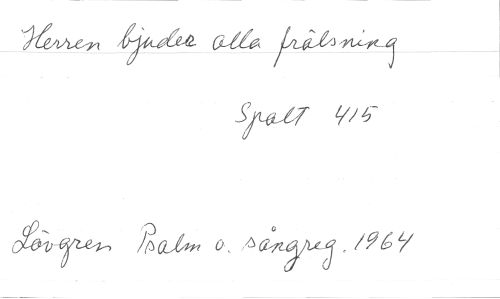 Herren bjuder alla frälsning
Spalt 415
Lövgren Psalm o. sångreg. 1964